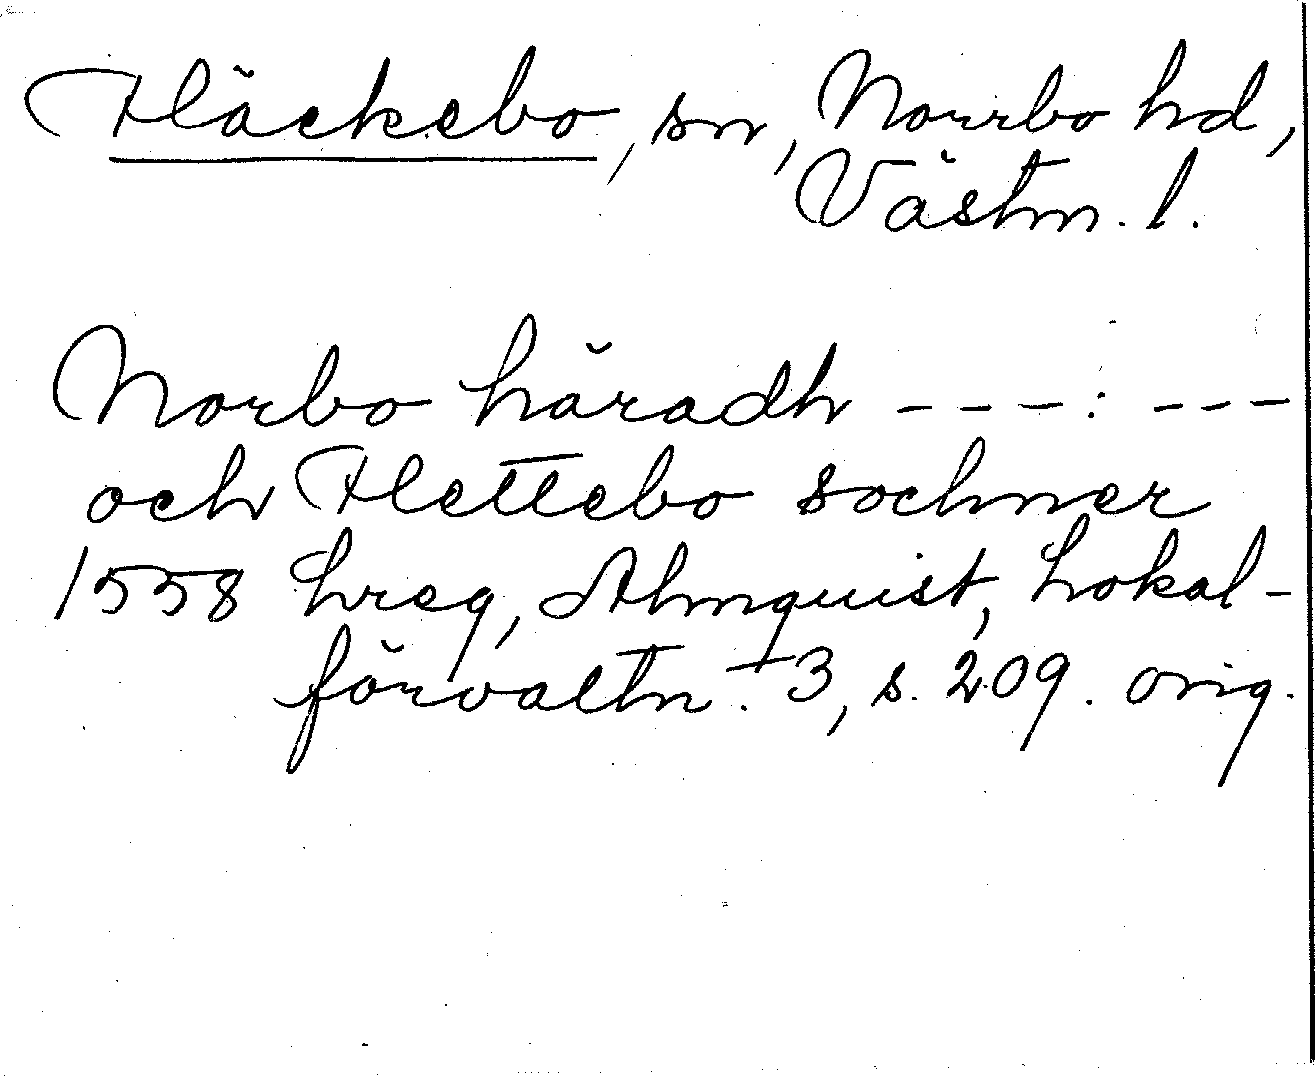 Fläckebo, sn, Norrbo hd,
Västm. l.
Norbo häradh ---: ---
och Flettebo sochner
1558 hreg, Almquist, Lokal-
förvaltn. 3, s. 209. orig.